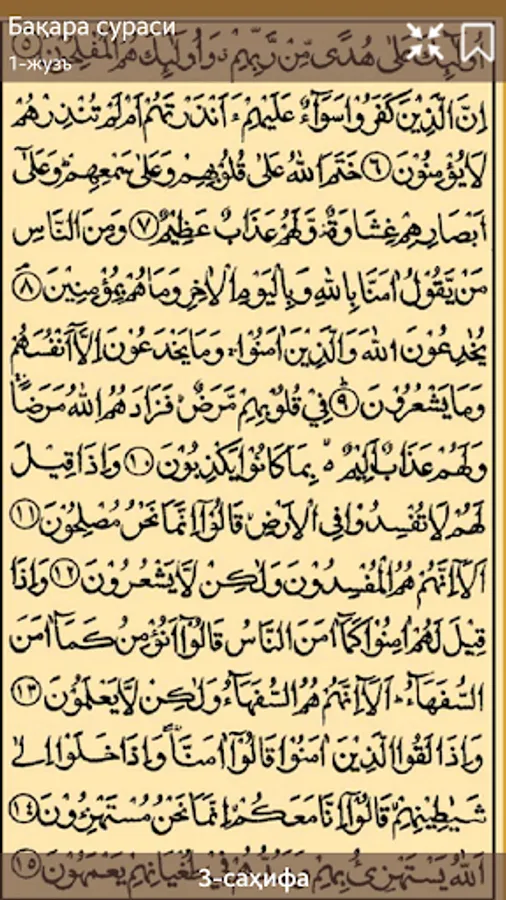 Бақара сураси
1-жузъ
اُولٰٓئِكَ عَلٰى هُدًى مِّنْ رَّبِّهِمْ ۙ وَاُولٰٓئِكَ هُمُ الْمُفْلِحُوْنَ ٥
اِنَّ الَّذِيْنَ كَفَرُوْا سَوَآءٌ عَلَيْهِمْ ءَاَنْذَرْتَهُمْ اَمْ لَمْ تُنْذِرْهُمْ
لَا يُؤْمِنُوْنَ ٦ خَتَمَ اللّٰهُ عَلٰى قُلُوْبِهِمْ وَعَلٰى سَمْعِهِمْ ؕ وَعَلٰٓى
اَبْصَارِهِمْ غِشَاوَةٌ ۫ وَّلَهُمْ عَذَابٌ عَظِيْمٌ ٧ وَمِنَ النَّاسِ
مَنْ يَّقُوْلُ اٰمَنَّا بِاللّٰهِ وَبِالْيَوْمِ الْاٰخِرِ وَمَا هُمْ بِمُؤْمِنِيْنَ ٨
يُخٰدِعُوْنَ اللّٰهَ وَالَّذِيْنَ اٰمَنُوْا ۚ وَمَا يَخْدَعُوْنَ اِلَّآ اَنْفُسَهُمْ
وَمَا يَشْعُرُوْنَ ٩ فِيْ قُلُوْبِهِمْ مَّرَضٌ ۙ فَزَادَهُمُ اللّٰهُ مَرَضًا ۚ
وَلَهُمْ عَذَابٌ اَلِيْمٌ ۢ بِمَا كَانُوْا يَكْذِبُوْنَ ١٠ وَاِذَا قِيْلَ
لَهُمْ لَا تُفْسِدُوْا فِى الْاَرْضِ ۙ قَالُوْٓا اِنَّمَا نَحْنُ مُصْلِحُوْنَ ١١
اَلَآ اِنَّهُمْ هُمُ الْمُفْسِدُوْنَ وَلٰكِنْ لَّا يَشْعُرُوْنَ ١٢ وَاِذَا
قِيْلَ لَهُمْ اٰمِنُوْا كَمَآ اٰمَنَ النَّاسُ قَالُوْٓا اَنُؤْمِنُ كَمَآ اٰمَنَ
السُّفَهَآءُ ؕ اَلَآ اِنَّهُمْ هُمُ السُّفَهَآءُ وَلٰكِنْ لَّا يَعْلَمُوْنَ ١٣
وَاِذَا لَقُوا الَّذِيْنَ اٰمَنُوْا قَالُوْٓا اٰمَنَّا ۖ وَاِذَا خَلَوْا اِلٰى
شَيٰطِيْنِهِمْ ۙ قَالُوْٓا اِنَّا مَعَكُمْ ۙ اِنَّمَا نَحْنُ مُسْتَهْزِءُوْنَ ١٤
اَللّٰهُ يَسْتَهْزِئُ بِهِمْ وَيَمُدُّهُمْ فِيْ طُغْيَانِهِمْ يَعْمَهُوْنَ ١٥
3-саҳифа